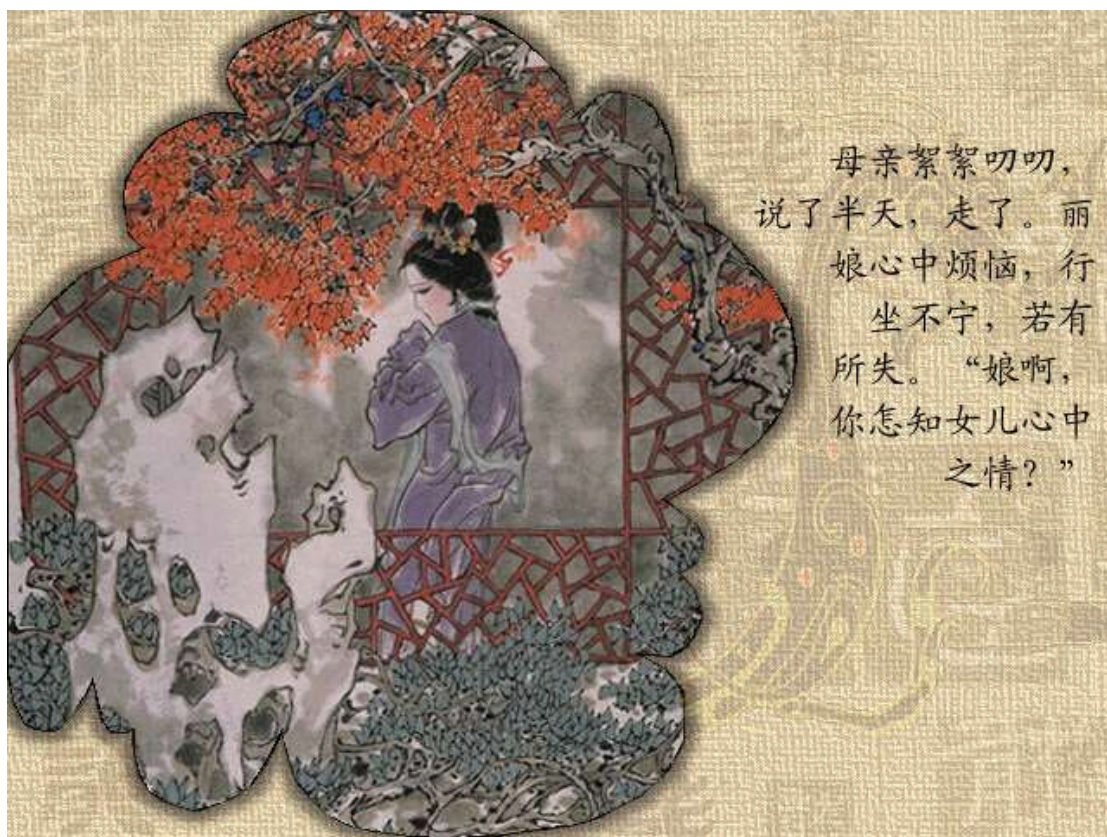 母亲絮絮叨叨，
说了半天，走了。丽
娘心中烦恼，行
坐不宁，若有
所失。 “娘啊，
你怎知女儿心中
之情？”